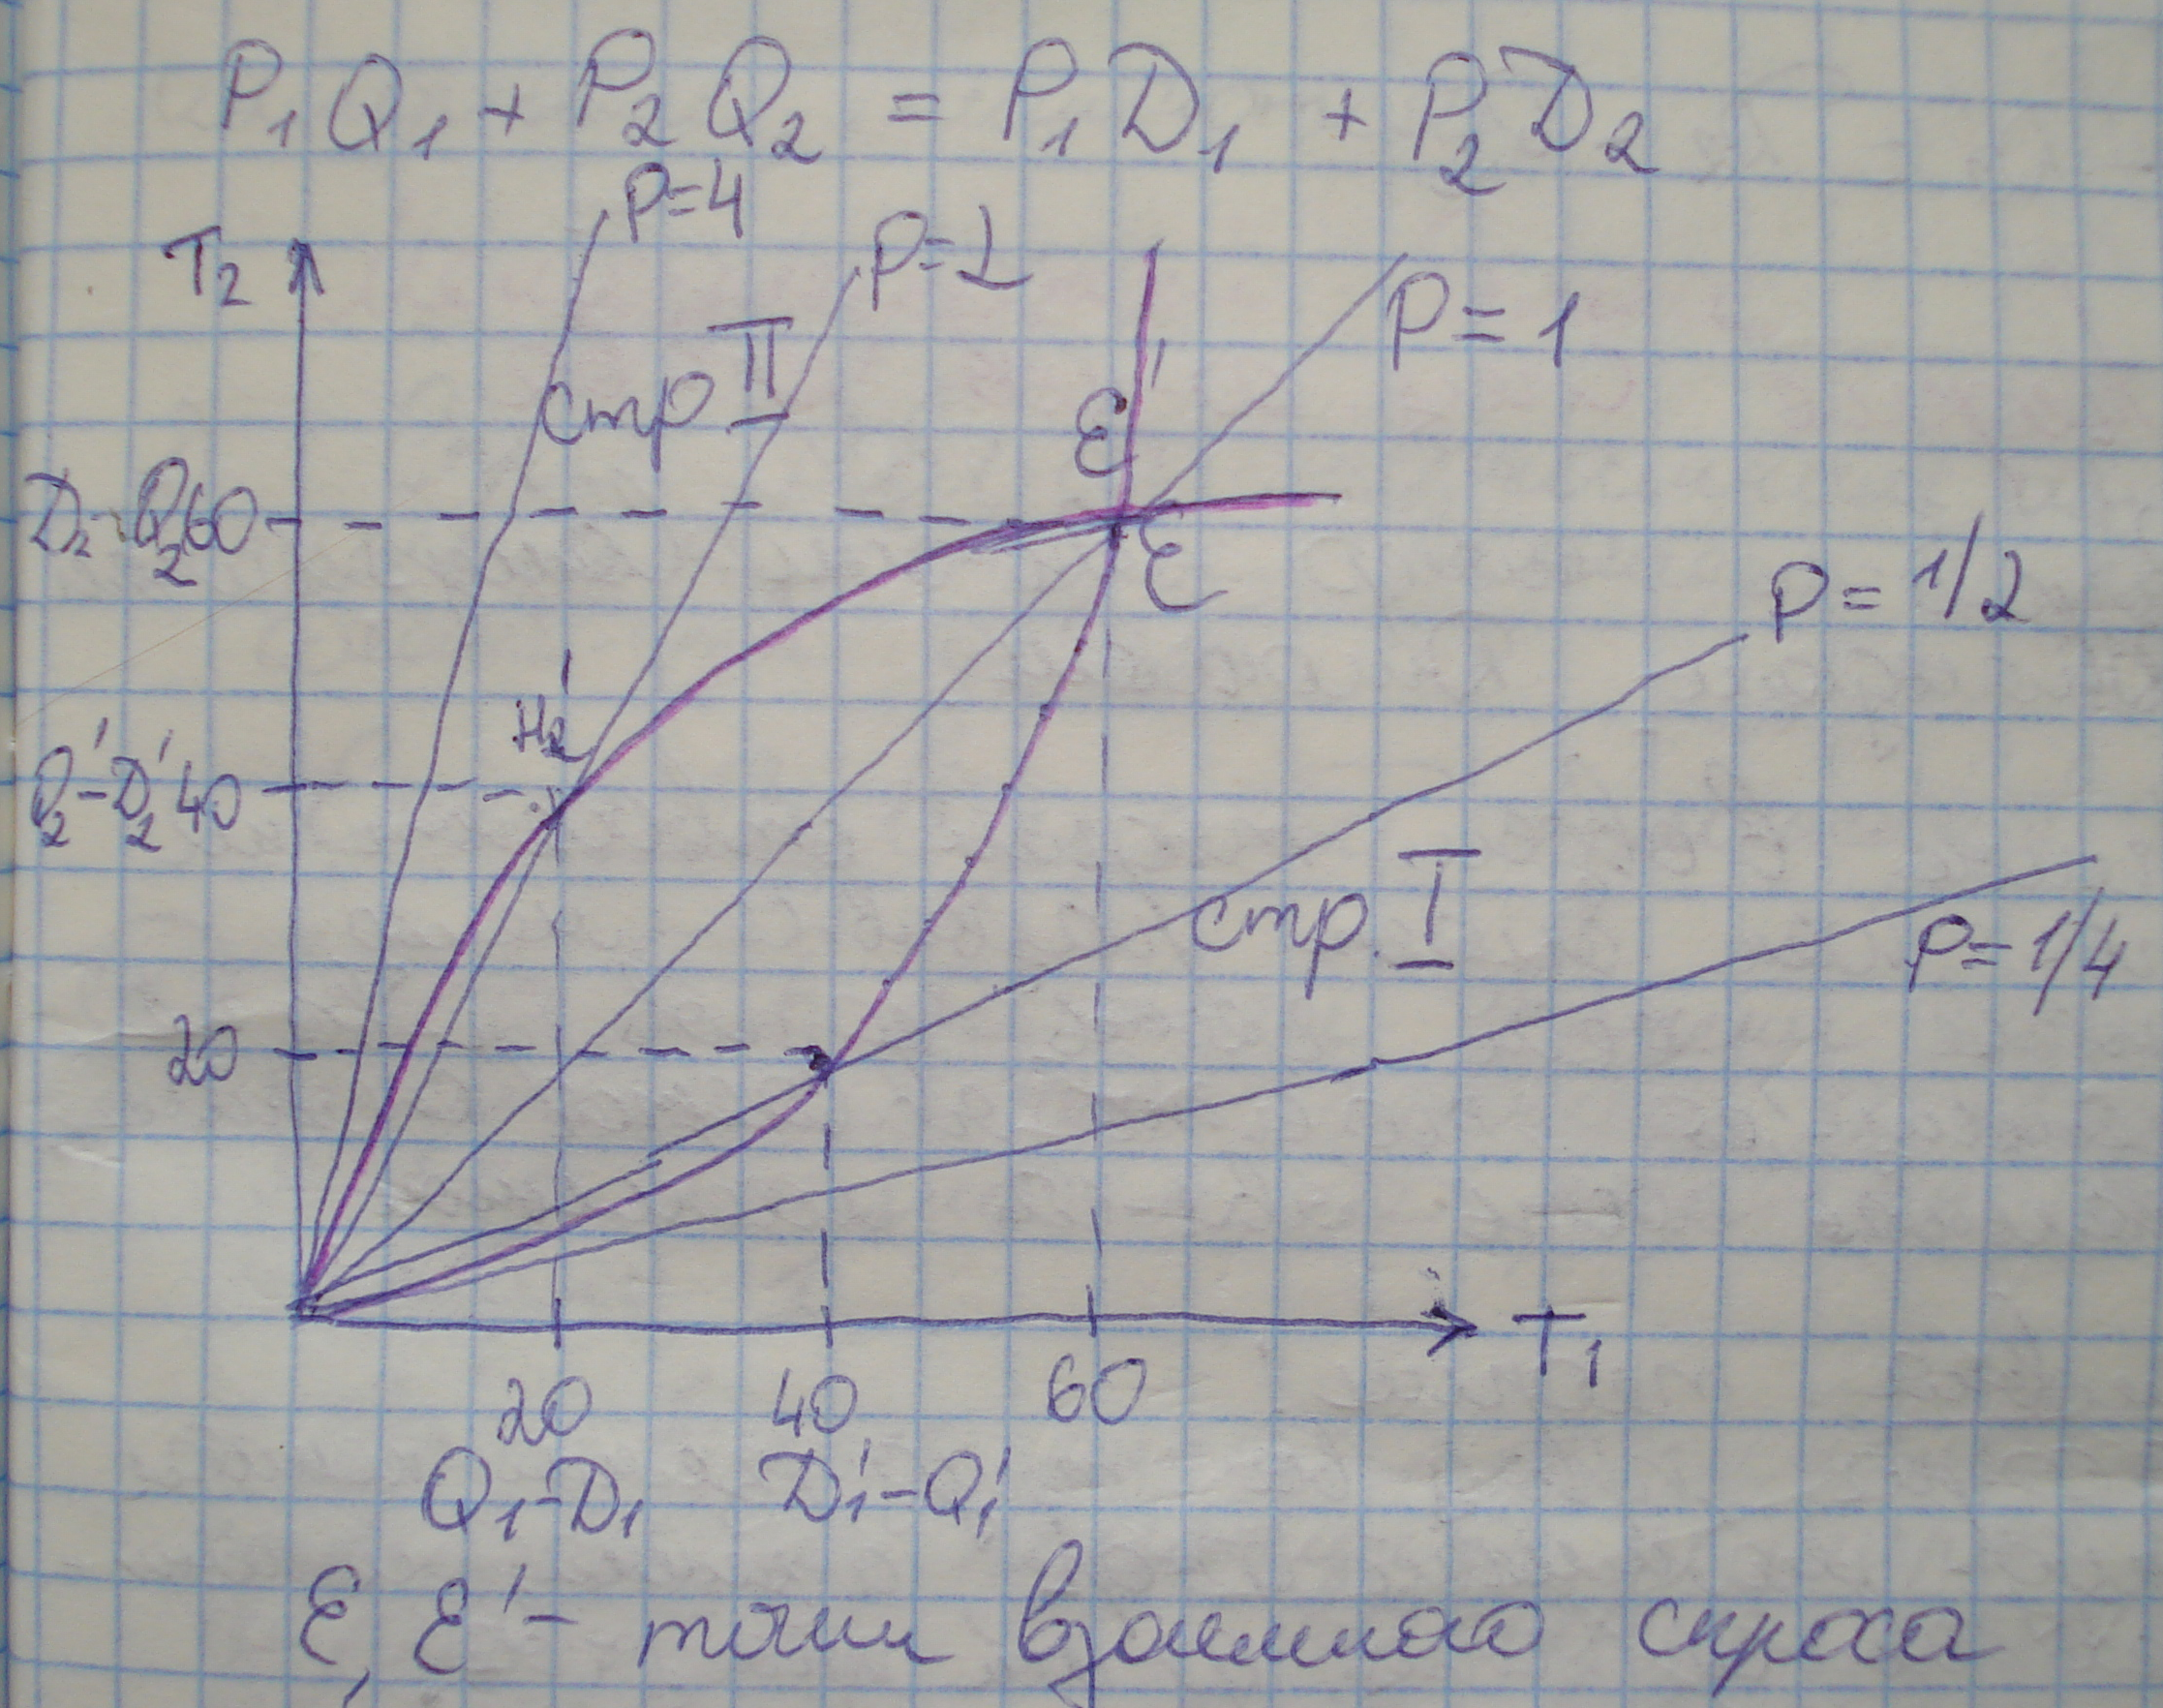 P₁Q₁ + P₂Q₂ = P₁D₁ + P₂D₂
P=4
P=2
T₂
P=1
стр II
E'
D₂-Q₂ 60
E
P=1/2
H₂'
Q₂'-D₂' 40
стр. I
P=1/4
20
T₁
20 40 60
Q₁-D₁ D₁'-Q₁'
E, E' - точки взаимного спроса